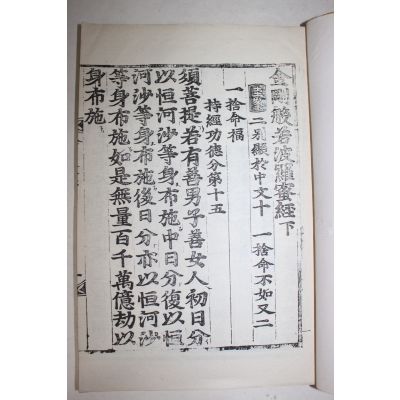 金剛般若波羅蜜經下
二別顯於中文十　一捨命不如又二
一捨命福
持經功德分第十五
須菩提若有善男子善女人初日分
以恒河沙等身布施中日分復以恒
河沙等身布施後日分亦以恒河沙
等身布施如是無量百千萬億劫以
身布施